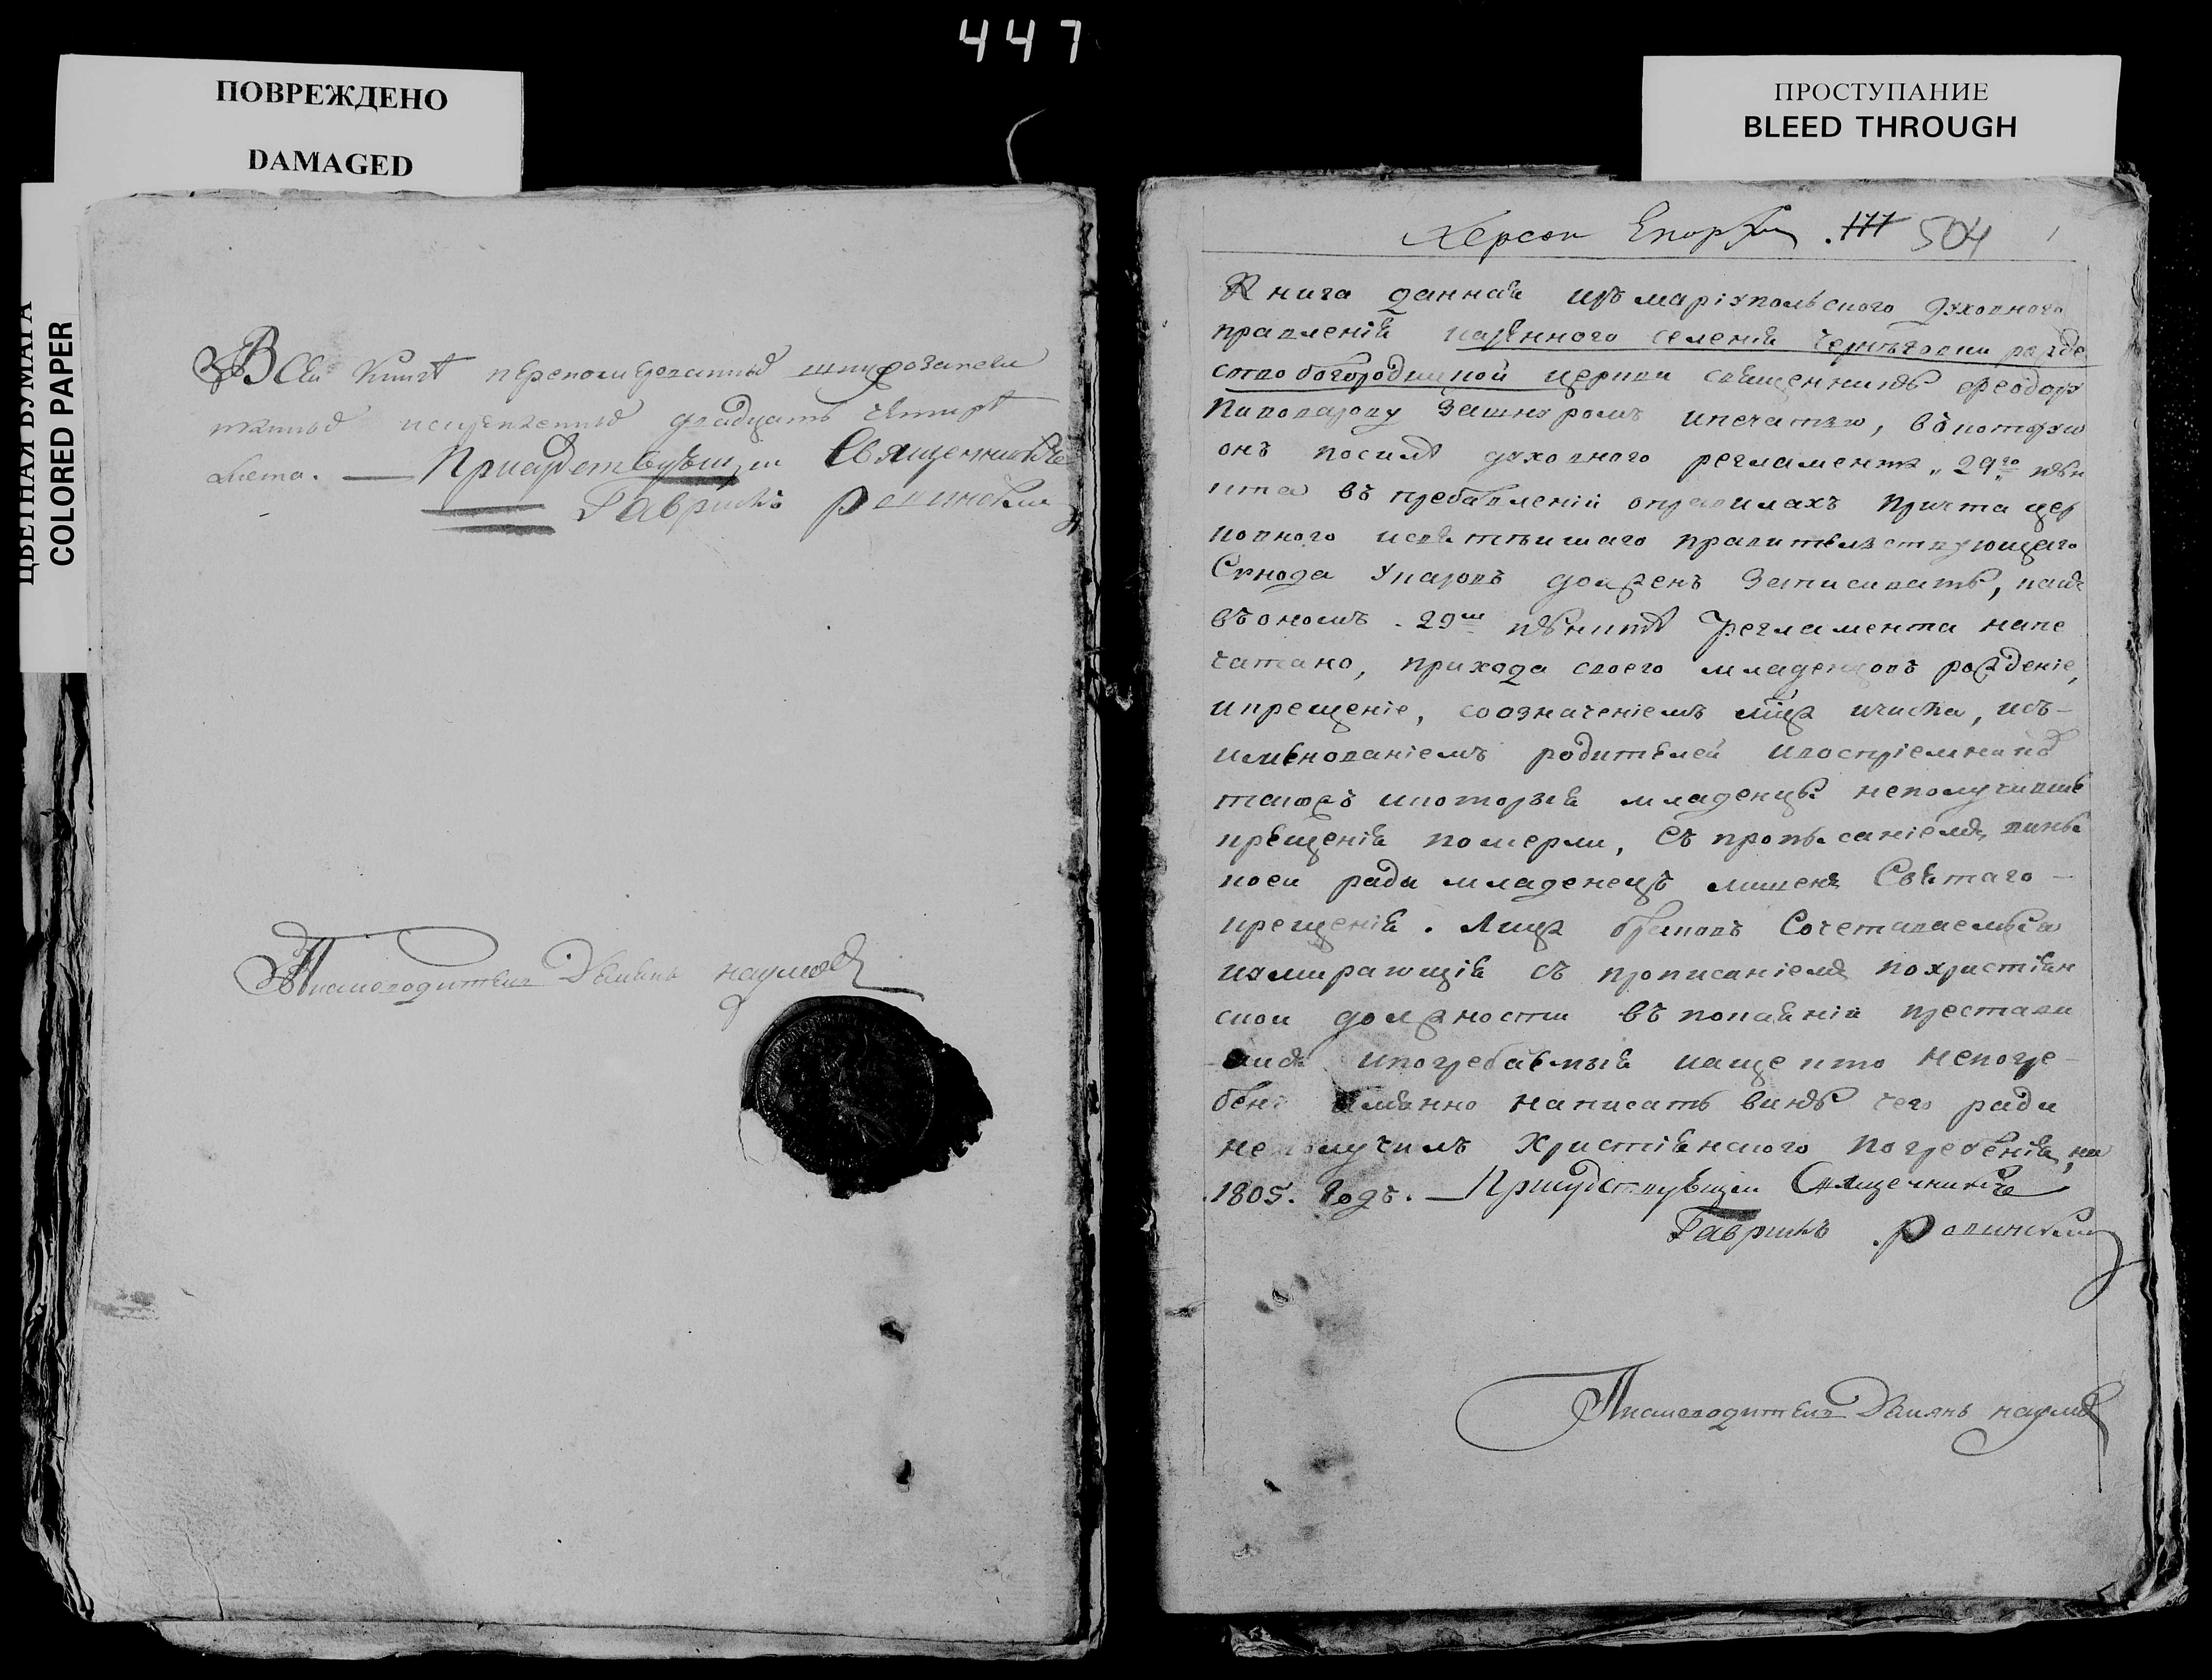 447
ПОВРЕЖДЕНО
DAMAGED
ЦВЕТНАЯ БУМАГА
COLORED PAPER
ПРОСТУПАНИЕ
BLEED THROUGH
Въ сеи книгѣ
двадцать четыре
листа. — Присудствующи Священникъ
Гаврiилъ
Писмоводитель наумовъ
Херсон 177 504 1
Книга данная изъ марiупольского духовного
правленiя казенного селенiя рожде
ство богородичной церкви священнику феодору
зашнуромъ ипечатью, въ которую
онъ посилѣ духовного регламента, 29го пун
кта въ прибавленiи оправилахъ причта цер
ковного исвятѣишаго правительствующаго
Синода Указовъ долженъ записивать, какъ
въономъ 29м пунктѣ регламента напе
чатано, прихода своего младенцовъ рожденiе,
икрещенiе, соозначенiемъ числа, исъ-
именованiемъ родителей ивоспрiемниковъ
такожъ икоторыя младенцы неполучивши
крещенiя померли, съ прописанiемъ вины
коеи ради младенецъ лишенъ Святаго -
крещенiя. Лица браковъ Сочетаваемыя
иумирающiя съ прописанiемъ по христiян
скои должности въ покаянiи престави
ипогребаемыя иаще кто непогре-
бенъ имянно написать вину чего ради
неполучилъ христiянского погребенiя, на
1805. Годъ. — Присудствующи Священникъ
Гаврiилъ
Писмоводитель наумовъ